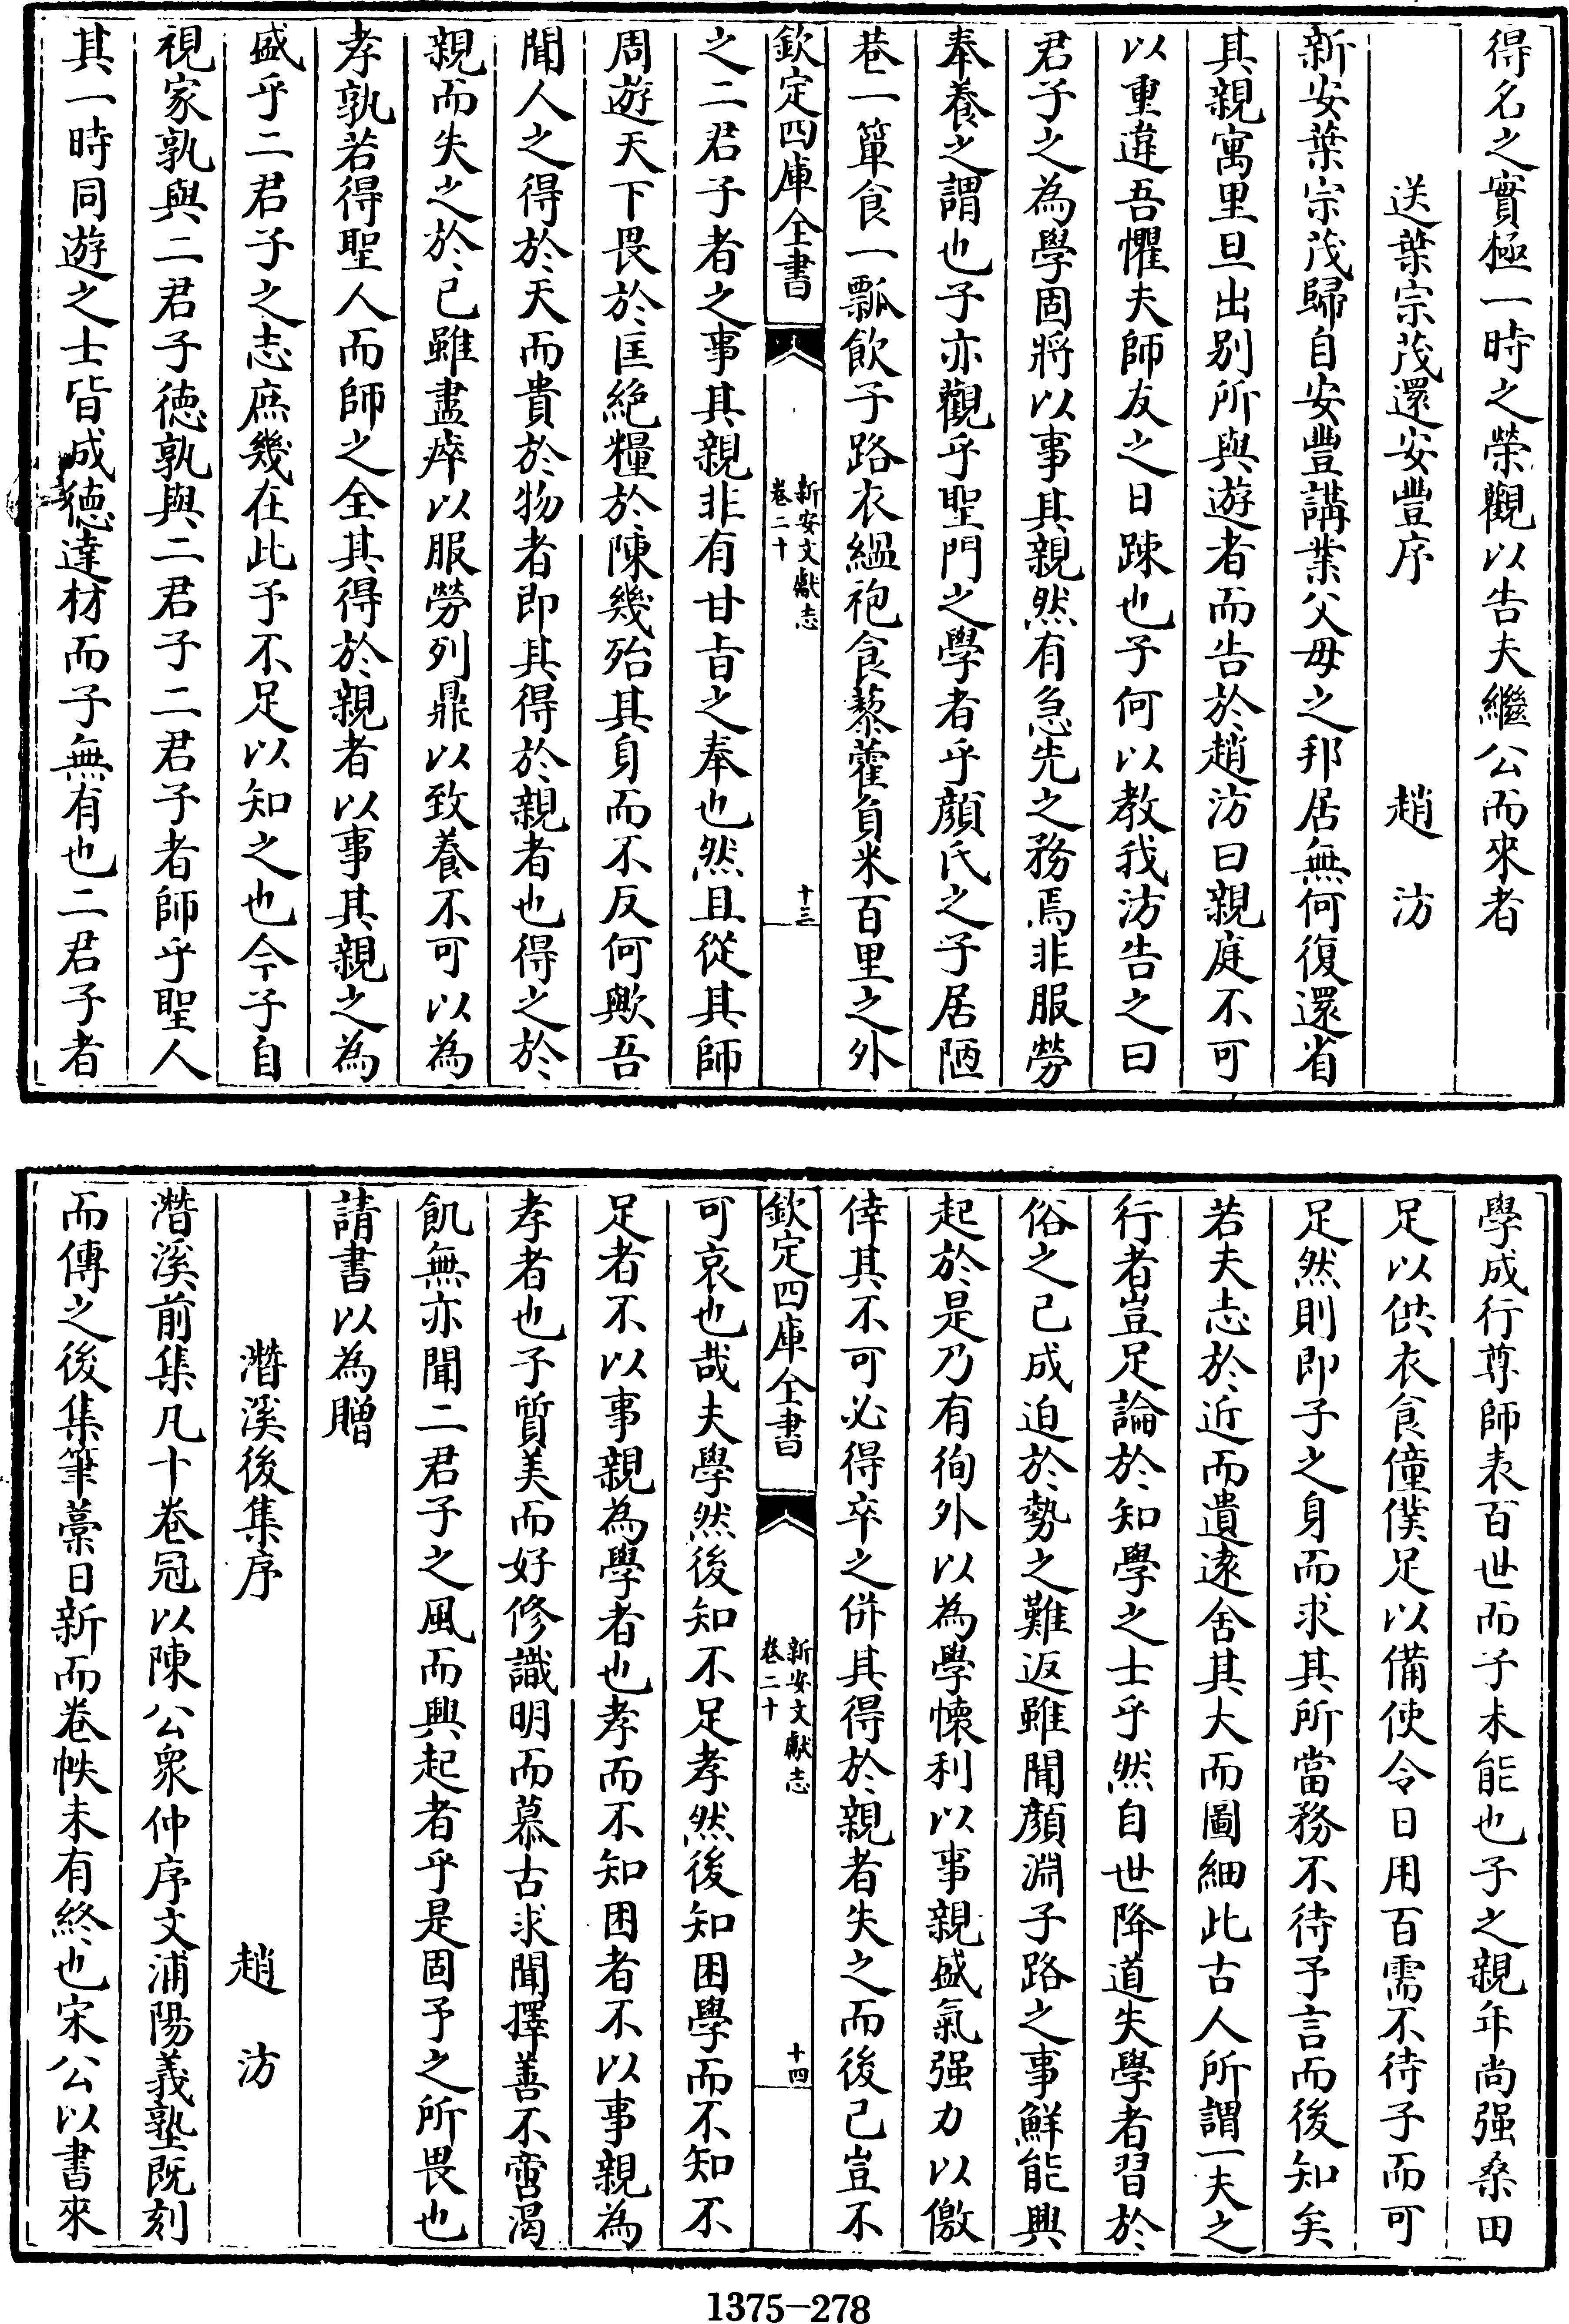 得名之實極一時之榮觀以告夫繼公而來者
送葉宗茂還安豐序　趙汸
新安葉宗茂歸自安豐講業父母之邦居無何復還省
其親寓里旦出別所與遊者而告於趙汸曰親庭不可
以重違吾懼夫師友之日踈也子何以教我汸告之曰
君子之為學固將以事其親然有急先之務焉非服勞
奉養之謂也子亦觀乎聖門之學者乎顔氏之子居陋
巷一簞食一瓢飲子路衣緼袍食藜藿負米百里之外
欽定四庫全書　新安文獻志卷二十　十三
之二君子者之事其親非有甘旨之奉也然且從其師
周遊天下畏於匡絶糧於陳幾殆其身而不反何歟吾
聞人之得於天而貴於物者即其得於親者也得之於
親而失之於已雖盡瘁以服勞列鼎以致養不可以為
孝孰若得聖人而師之全其得於親者以事其親之為
盛乎二君子之志庶幾在此予不足以知之也今子自
視家孰與二君子徳孰與二君子二君子者師乎聖人
其一時同遊之士皆成徳達材而子無有也二君子者
學成行尊師表百世而子未能也子之親年尚强桑田
足以供衣食僮僕足以備使令日用百需不待子而可
足然則即子之身而求其所當務不待予言而後知矣
若夫志於近而遺逺舍其大而圖細此古人所謂一夫之
行者豈足論於知學之士乎然自世降道失學者習於
俗之已成迫於勢之難返雖聞顔淵子路之事鮮能興
起於是乃有徇外以為學懐利以事親盛氣强力以儌
倖其不可必得卒之併其得於親者失之而後已豈不
欽定四庫全書　新安文獻志卷二十　十四
可哀也哉夫學然後知不足孝然後知困學而不知不
足者不以事親為學者也孝而不知困者不以事親為
孝者也子質美而好修識明而慕古求聞擇善不啻渇
飢無亦聞二君子之風而興起者乎是固予之所畏也
請書以為贈
潛溪後集序　趙汸
潛溪前集凡十卷冠以陳公衆仲序文浦陽義塾既刻
而傳之後集筆藁日新而卷帙未有終也宋公以書來
1375-278